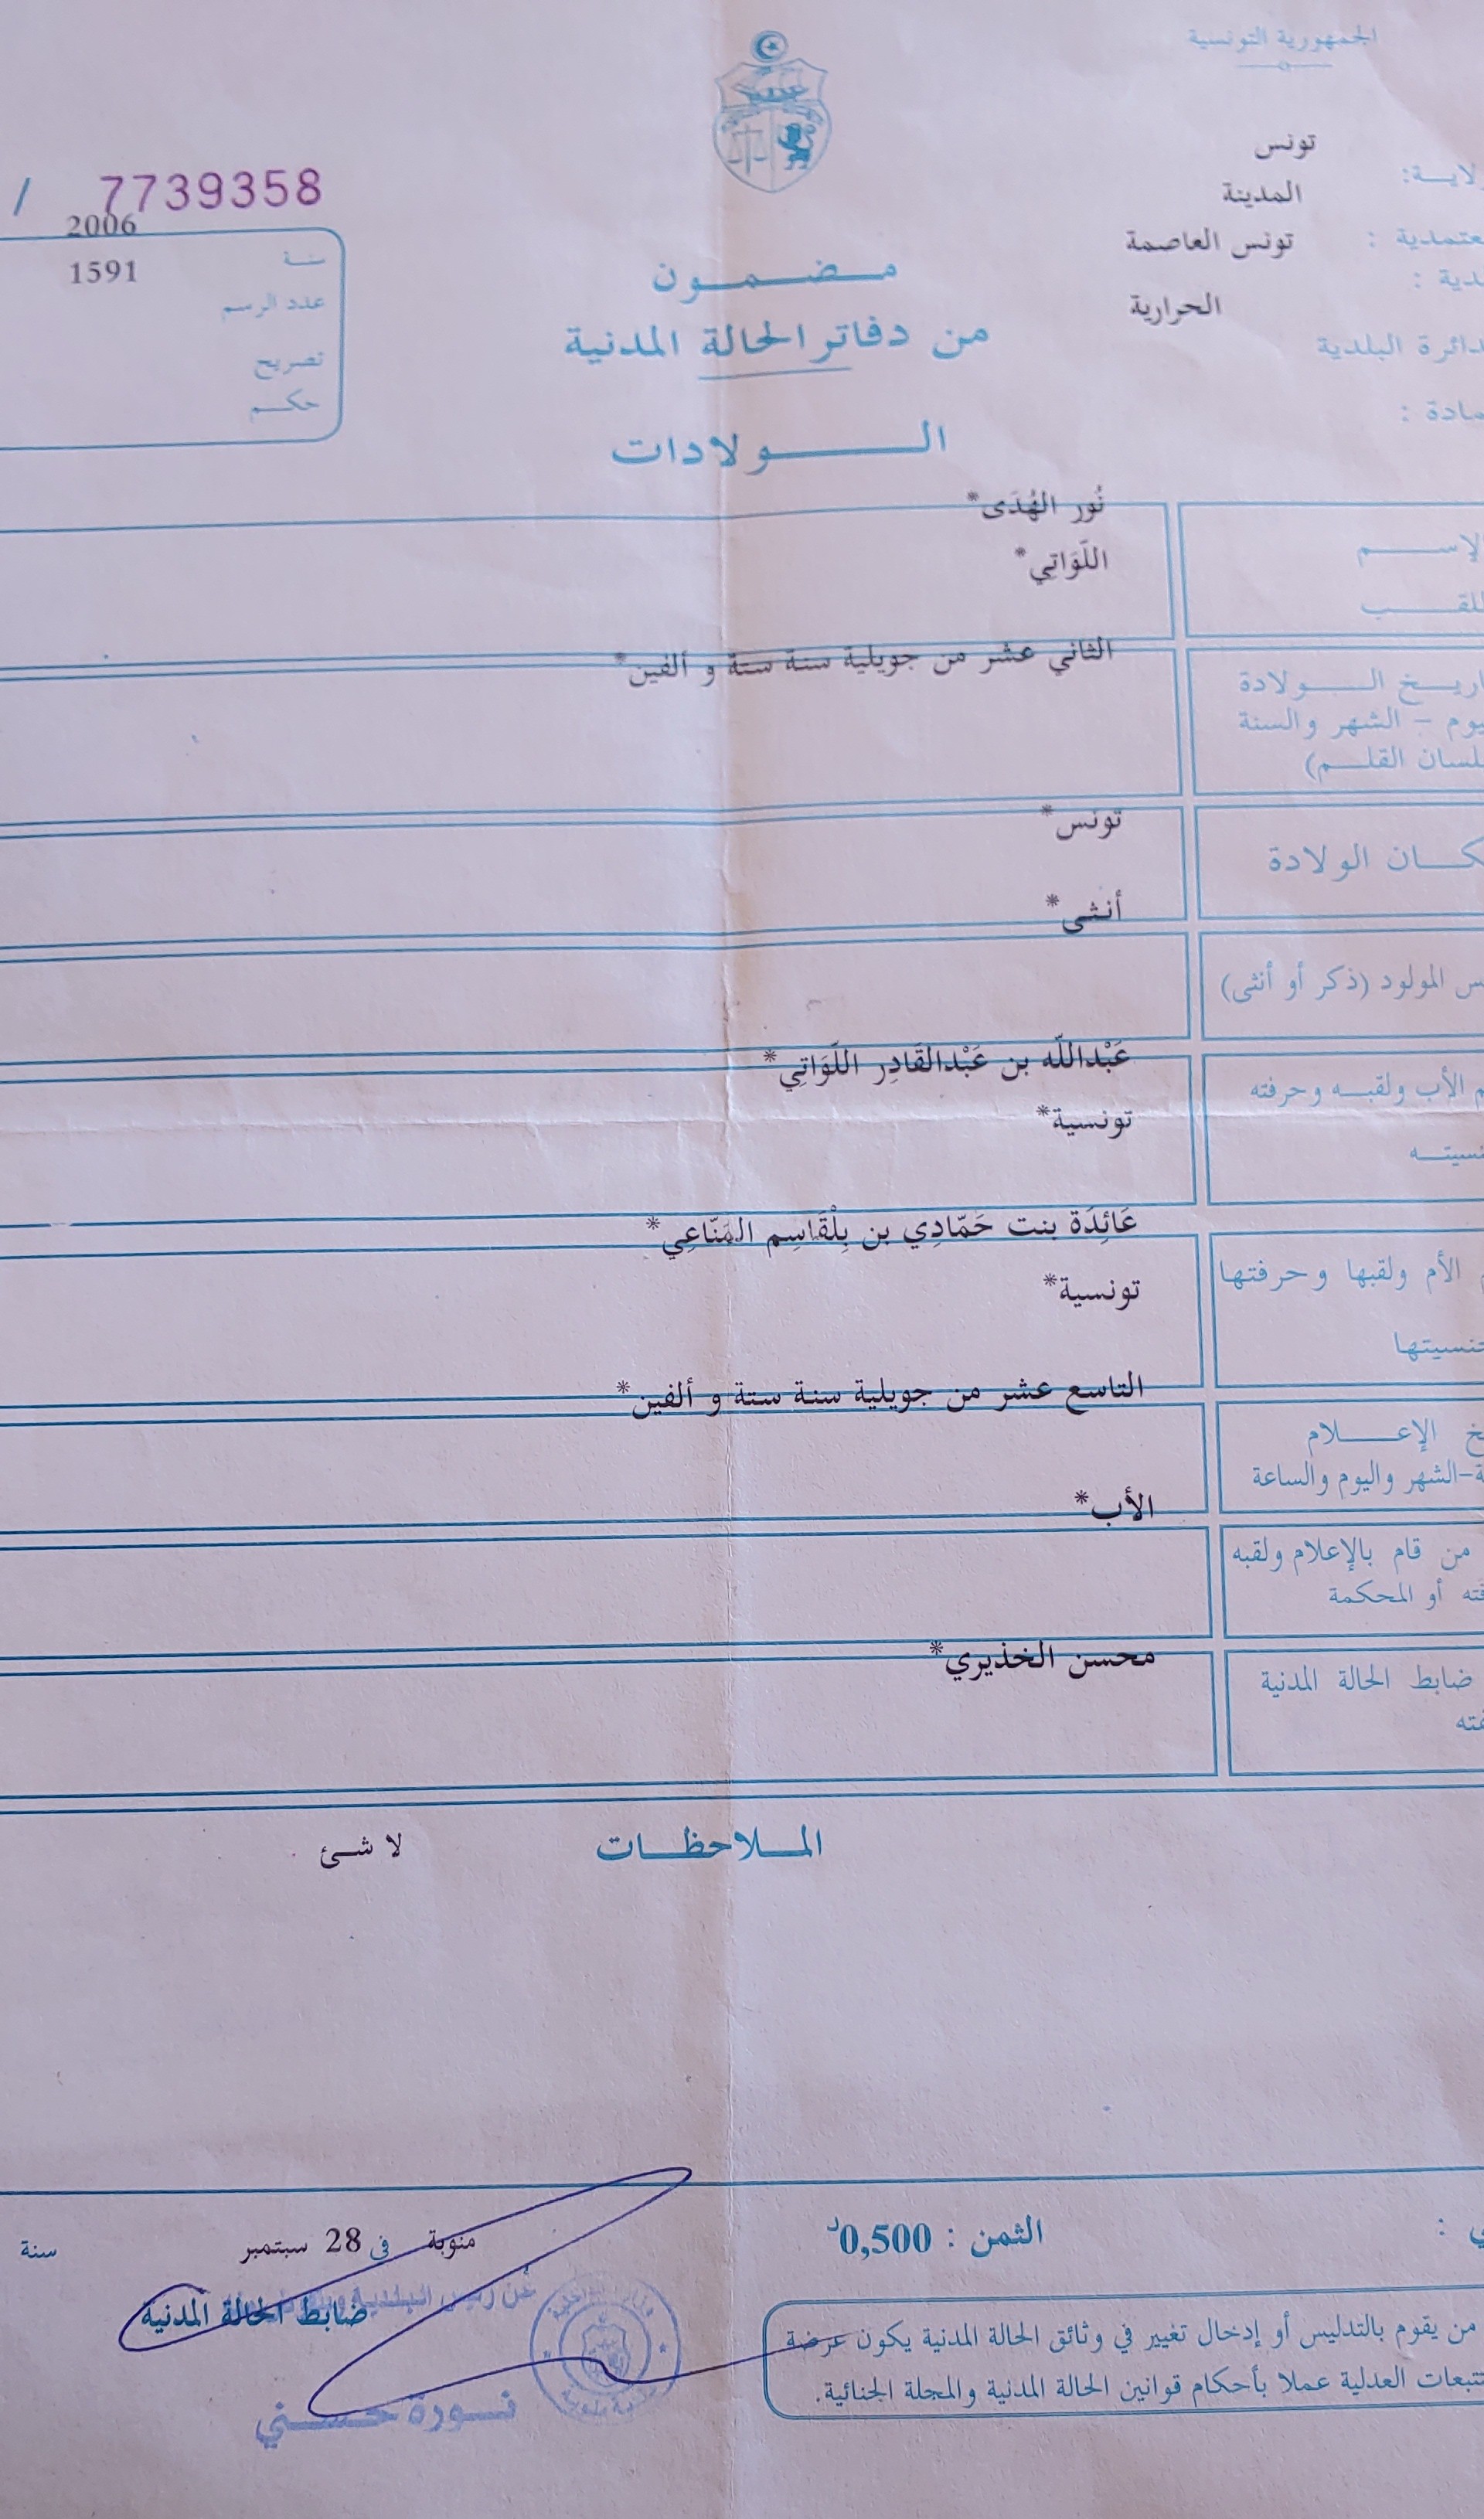 الجمهورية التونسية
تونس
لايـة:
المدينة
عتمدية :
تونس العاصمة
دية :
الحرارية
دائرة البلدية
مادة :
/ 7739358
2006
سنـة
1591
عدد الرسم
تصريح
حكـم
مـضـمـون
من دفاتر الحالة المدنية
الـولادات
نُور الهُدَى*
لإسـم
اللّوَاتِي*
للقـب
الثاني عشر من جويلية سنة ستة و ألفين*
اريـخ الـولادة
يوم - الشهر والسنة
لسان القلـم)
تونس*
كـان الولادة
أنثى*
س المولود (ذكر أو أنثى)
عَبْدالله بن عَبْدالقَادِر اللّوَاتِي*
م الأب ولقبـه وحرفته
تونسية*
نسيتـه
عَائِدَة بنت حَمّادِي بن بِلْقَاسِم المَنّاعِي*
الأم ولقبها وحرفتها
تونسية*
نسيتها
التاسع عشر من جويلية سنة ستة و ألفين*
خ الإعـلام
ة-الشهر واليوم والساعة
الأب*
من قام بالإعلام ولقبه
ته أو المحكمة
محسن الخذيري*
ضابط الحالة المدنية
فته
المـلاحظـات
لا شئ
ي :
الثمن : 0,500د
منوبة في 28 سبتمبر سنة
عن رئيس البلدية
ضابط الحالة المدنية
نـورة حسـني
من يقوم بالتدليس أو إدخال تغيير في وثائق الحالة المدنية يكون عرضة
تتبعات العدلية عملا بأحكام قوانين الحالة المدنية والمجلة الجنائية.